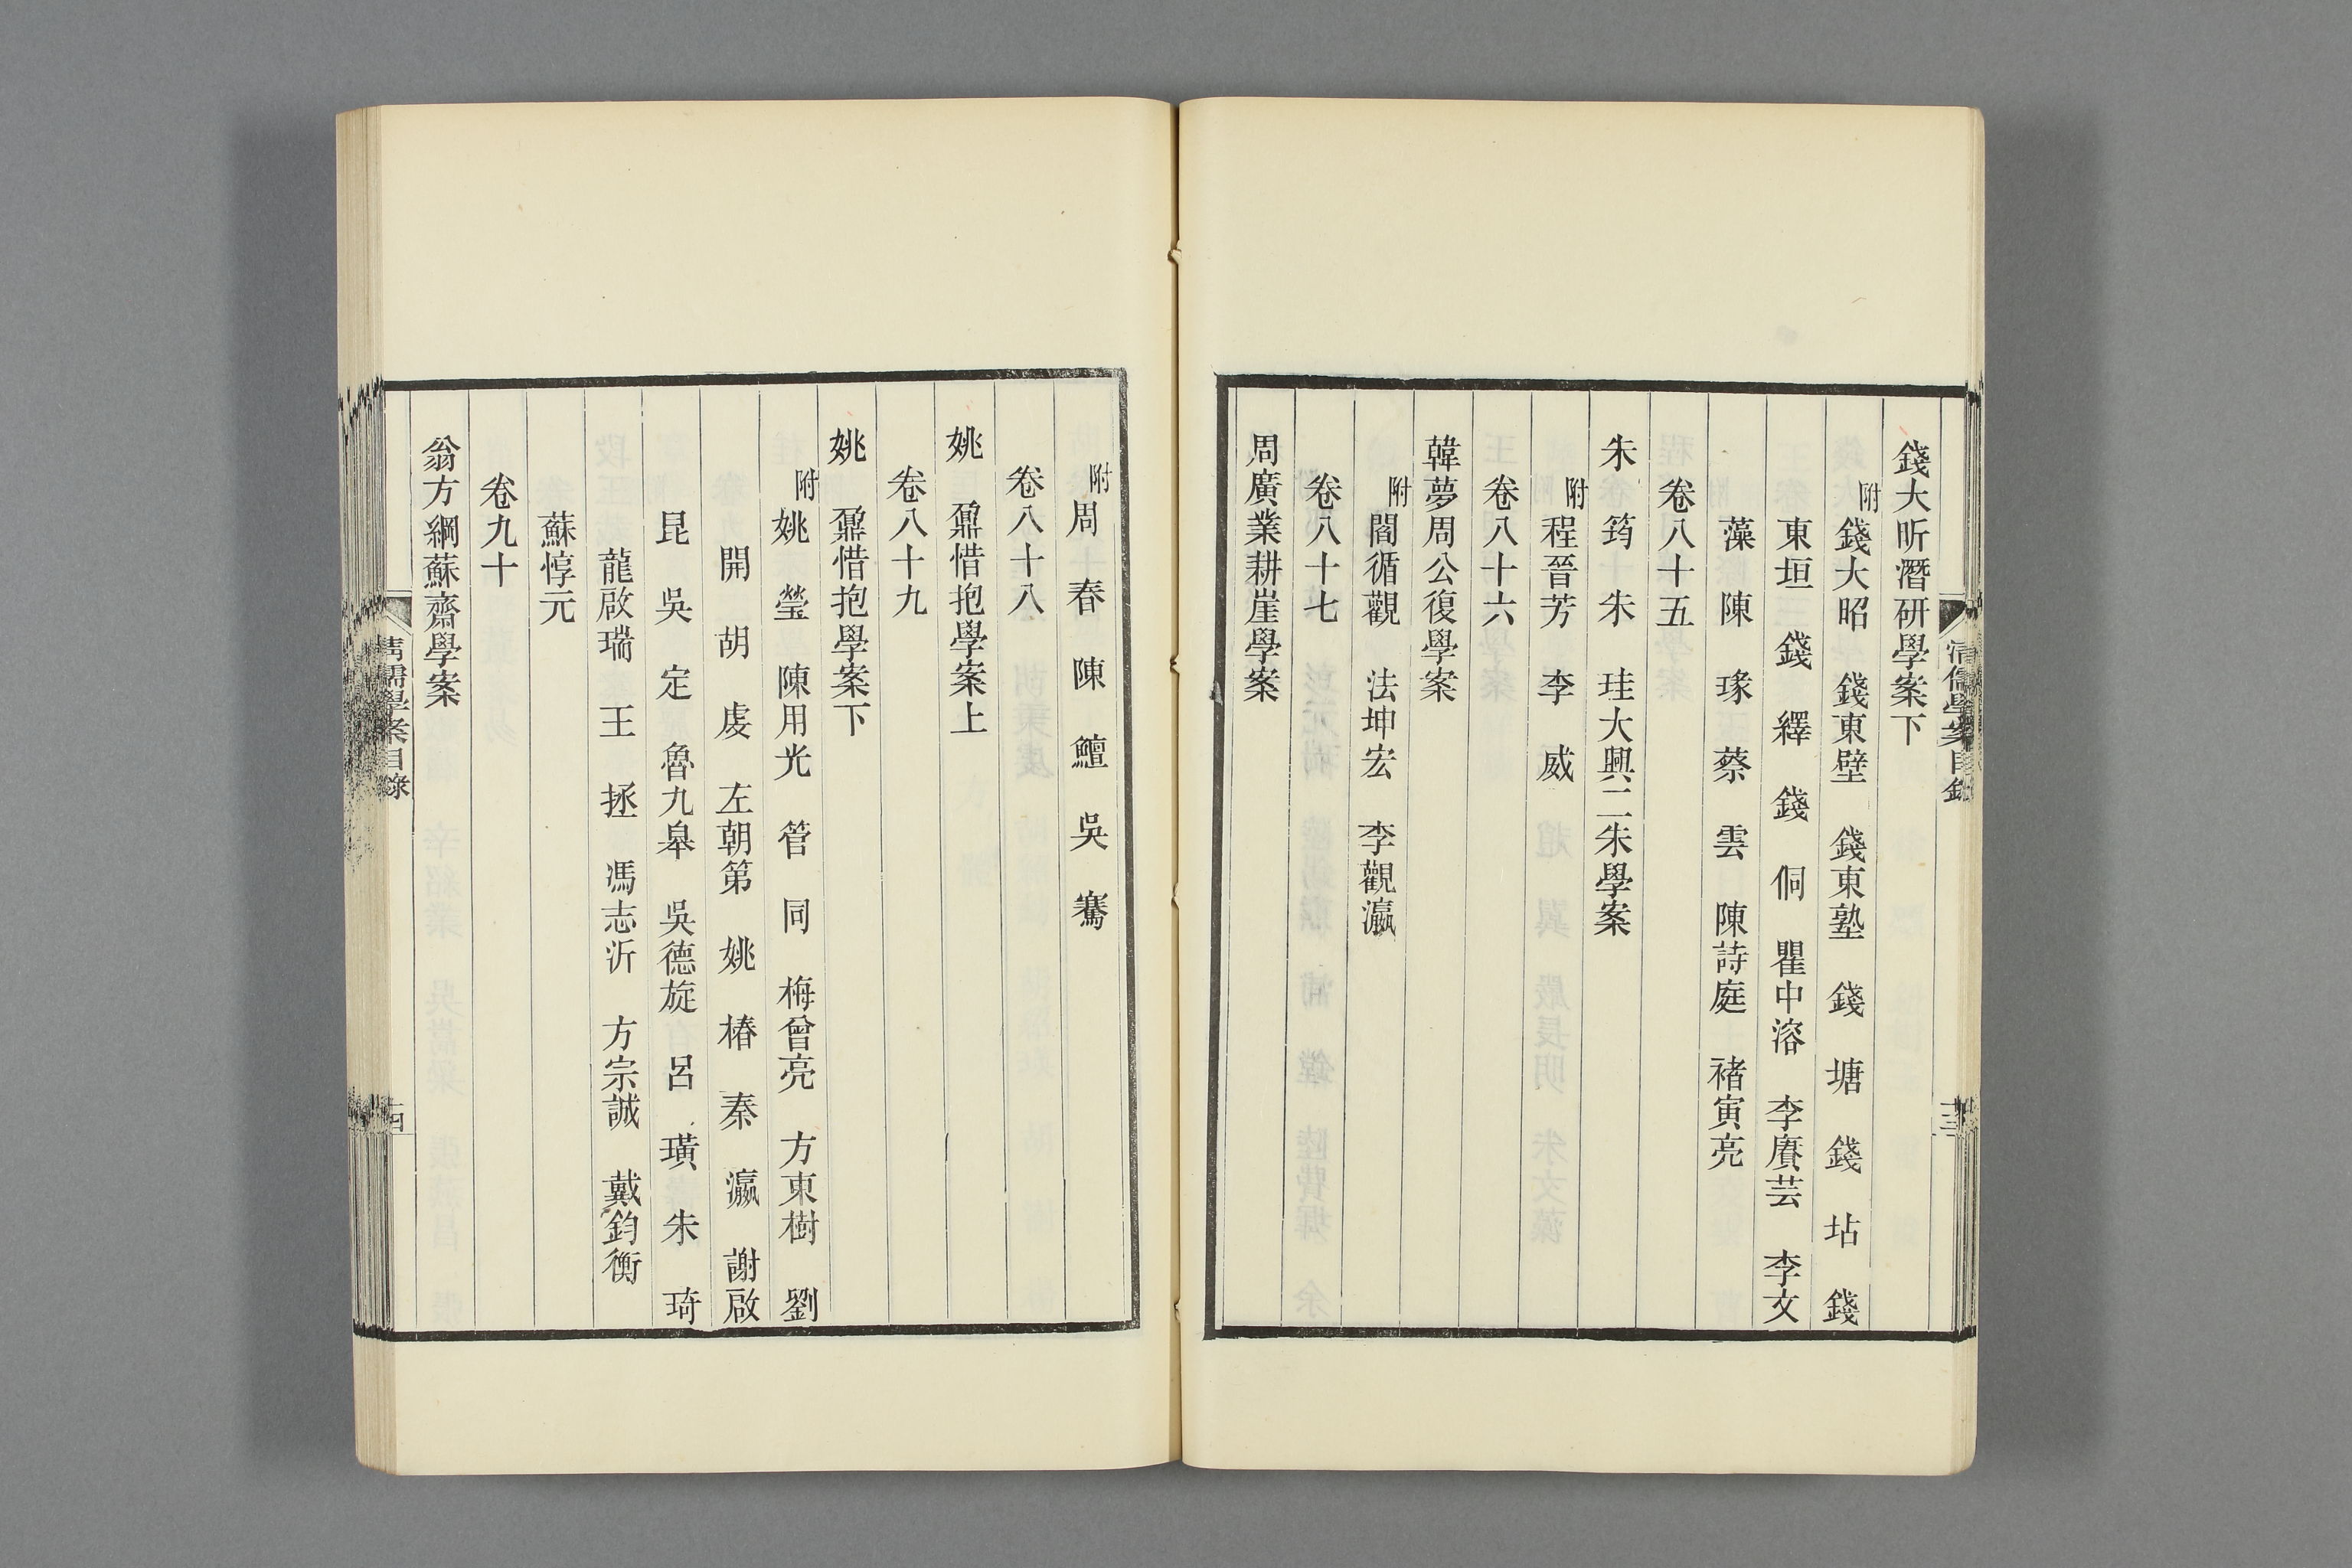 錢大昕潛研學案下
附錢大昭 錢東壁 錢東塾 錢 塘 錢 坫 錢
東垣 錢 繹 錢 侗 瞿中溶 李賡芸 李文
藻 陳 瑑 蔡 雲 陳詩庭 褚寅亮
卷八十五
朱 筠 朱 珪大興二朱學案
附程晉芳 李 威
卷八十六
韓夢周公復學案
附閻循觀 法坤宏 李觀瀛
卷八十七
周廣業耕崖學案
清儒學案目錄
十三
附周 春 陳 鱣 吳 騫
卷八十八
姚 鼐惜抱學案上
卷八十九
姚 鼐惜抱學案下
附姚 瑩 陳用光 管 同 梅曾亮 方東樹 劉
開 胡 虔 左朝第 姚 椿 秦 瀛 謝啟
昆 吳 定 魯九皋 吳德旋 呂 璜 朱 琦
龍啟瑞 王 拯 馮志沂 方宗誠 戴鈞衡
蘇惇元
卷九十
翁方綱蘇齋學案
清儒學案目錄
十四